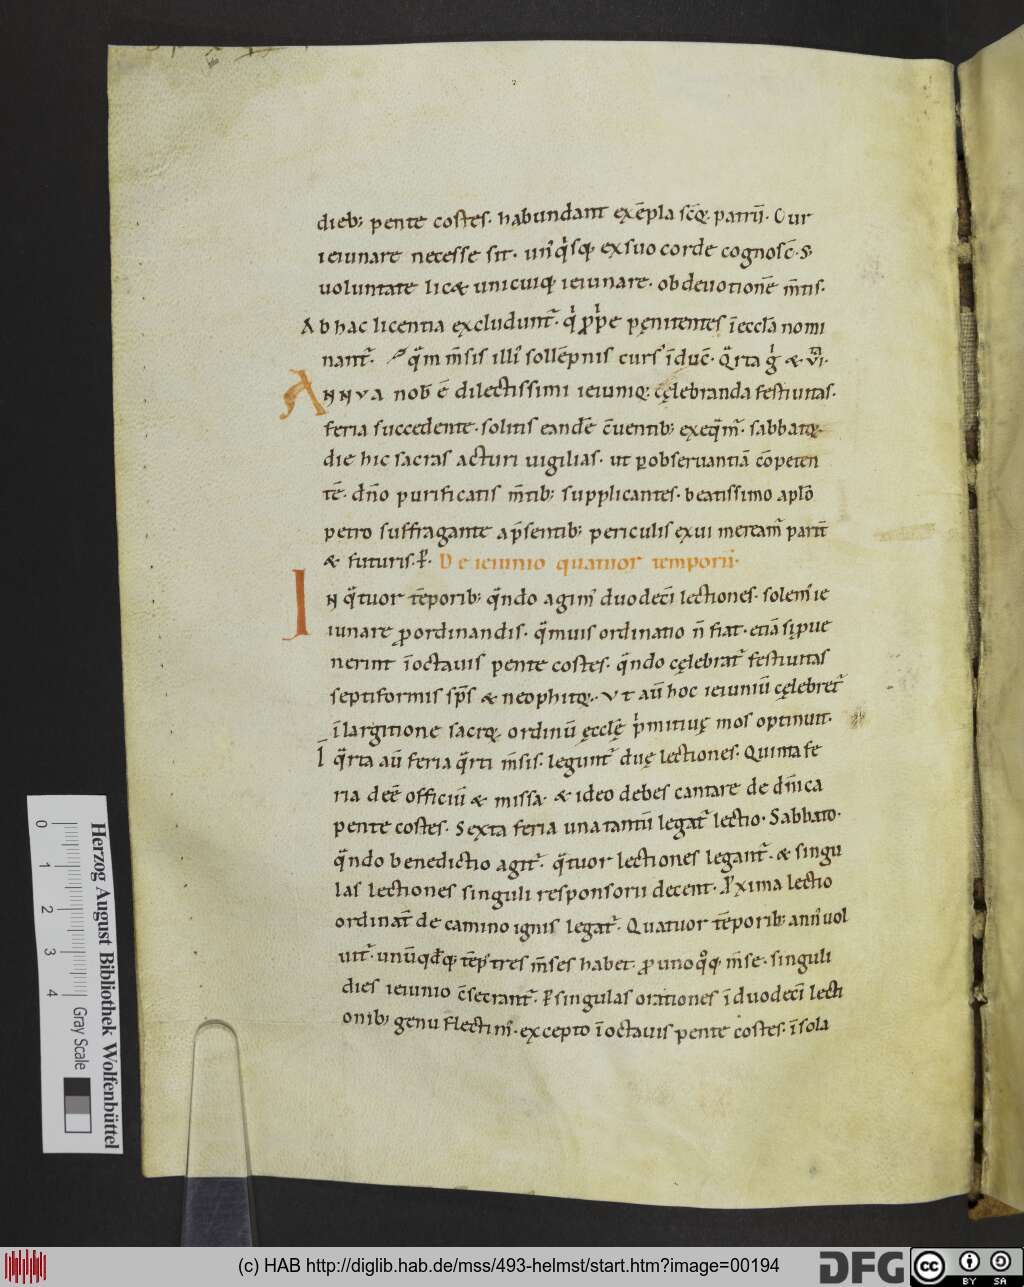 dieb; pente costes. habundant exēpla scōꝝ patrū. Cur
ieiunare necesse sit. un'qͥsq; ex suo corde cognosc̄. S;
uoluntate lic& unicuiq; ieiunare. ob deuotionē m̄tis.
Ab hac licentia excludunt᷑. qͥ ꝓpͥe pęnitentes ī eccl̄a nomi
nant᷑. qͣm m̄sis illi' sollēpnis curs' īduc̄. Qͣrta gͥ & vi.
ANNVA nob̄ ē dilectissimi ieiunioꝝ cęlebranda festiuitas.
feria succedente. solitis eandē c̄uentib; exeqͣm᷑. sabbatoꝝ
die hic sacras acturi uigilias. ut ꝑ obseruantiā cōpeten
tē. dn̄o purificatis m̄tib; supplicantes. beatissimo apl̄o
petro suffragante a p̄sentib; periculis exui meream᷑ parit̄
& futuris. ꝑ. De ieiunio quatuor temporū.
IN qͣtuor tēporib; qͣndo agim' duodecī lectiones. solem' ie
iunare ꝓ ordinandis. qͣmuis ordinatio n̄ fiat. etiā si ꝑue
nerint ī octauis pente costes. qͣndo cęlebrat᷑ festiuitas
septiformis sp̄s & neophitoꝝ. Vt aū hoc ieiuniū cęlebret᷑
ī largitione sacroꝝ ordinū ęcclę pͥmitiuę mos optinuit.
I qͣrta aū feria qͣrti m̄sis. legunt᷑ duę lectiones. Quinta fe
ria deē officiū & missa. & ideo debes cantare de dn̄ica
pente costes. Sexta feria una tantū legat᷑ lectio. Sabbato.
qͣndo benedictio agit᷑. qͣtuor lectiones legant᷑. & singu
las lectiones singuli responsorii decent. Ꝓxima lectio
ordinat᷑ de camino ignis legat᷑. Quatuor tēporib; ann' uol
uit᷑. unūqdq; tēp' tres m̄ses habet. ꝓ uno qͦq; m̄se. singuli
dies ieiunio c̄secrant᷑. Ꝑ singulas orationes ī duodecī lecti
onib; genu flectim'. excepto ī octauis pente costes. ī sola
Herzog August Bibliothek Wolfenbüttel
0 1 2 3 4 Gray Scale
(c) HAB http://diglib.hab.de/mss/493-helmst/start.htm?image=00194
DFG
cc BY SA